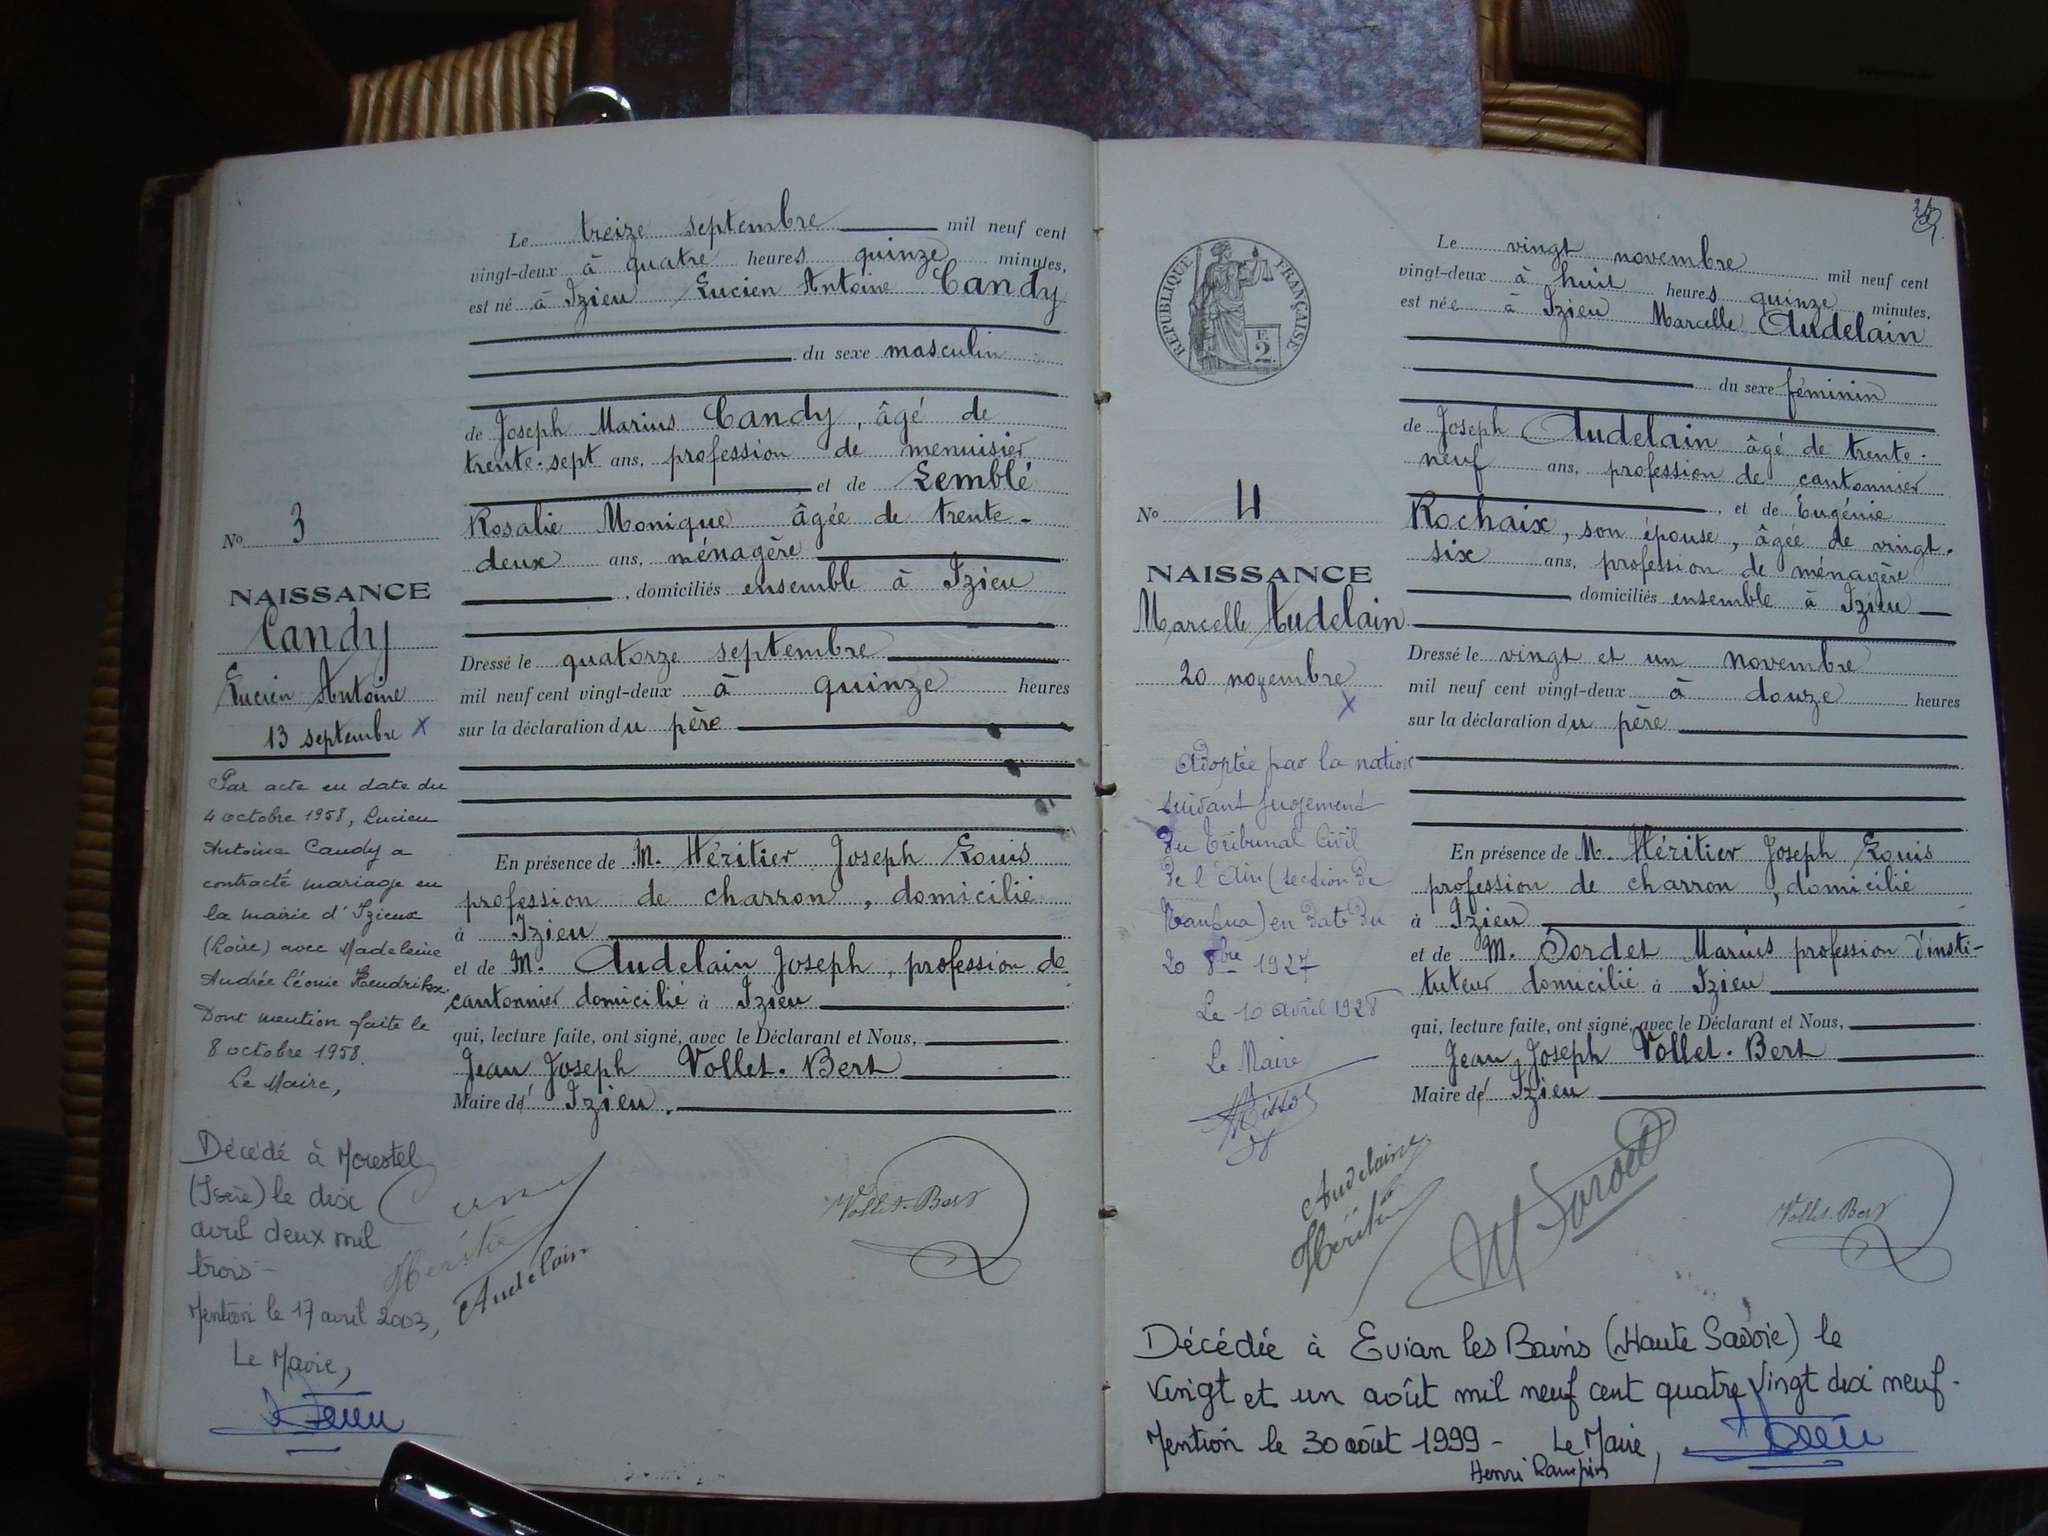 Le treize septembre mil neuf cent
vingt-deux à quatre heures quinze minutes,
est né à Izieu Lucien Antoine Candy
du sexe masculin
de Joseph Marius Candy, âgé de
trente-sept ans, profession de menuisier
et de Lemblé
Rosalie Monique âgée de trente-
deux ans, ménagère
, domiciliés ensemble à Izieu
Dressé le quatorze septembre
mil neuf cent vingt-deux à quinze heures
sur la déclaration du père
En présence de M. Héritier Joseph Louis
profession de charron, domicilié
à Izieu
et de M. Audelain Joseph, profession de
cantonnier domicilié à Izieu
qui, lecture faite, ont signé, avec le Déclarant et Nous,
Jean Joseph Vollet-Bert
Maire d' Izieu.
No 3
NAISSANCE
Candy
Lucien Antoine
13 septembre X
Par acte en date du
4 octobre 1958, Lucien
Antoine Candy a
contracté mariage en
la mairie d'Izieux
(Loire) avec Madeleine
Andrée Léonie Hendrikx.
Dont mention faite le
8 octobre 1958.
Le Maire,
Décédé à Morestel
(Isère) le dix
avril deux mil
trois-
Mention le 17 avril 2003,
Le Maire,
Héritier
Audelain
Vollet-Bert
RÉPUBLIQUE FRANÇAISE
F.
2
Le vingt novembre mil neuf cent
vingt-deux à huit heures quinze minutes,
est née à Izieu Marcelle Audelain
du sexe féminin
de Joseph Audelain âgé de trente-
neuf ans, profession de cantonnier
, et de Eugénie
Rochaix, son épouse, âgée de vingt-
six ans, profession de ménagère
domiciliés ensemble à Izieu
Dressé le vingt et un novembre
mil neuf cent vingt-deux à douze heures
sur la déclaration du père
En présence de M. Héritier Joseph Louis
profession de charron, domicilié
à Izieu
et de M. Sordet Marius profession d'insti-
tuteur domicilié à Izieu
qui, lecture faite, ont signé, avec le Déclarant et Nous,
Jean Joseph Vollet-Bert
Maire d' Izieu
No 4
NAISSANCE
Marcelle Audelain
20 novembre
X
Adoptée par la nation
suivant jugement
du Tribunal Civil
de l'Ain (section de
Nantua) en date du
20 8bre 1927
Le 10 avril 1928
Le Maire
Audelain
Héritier
M Sordet
Vollet-Bert
Décédée à Evian les Bains (Haute Savoie) le
vingt et un août mil neuf cent quatre vingt dix neuf-
Mention le 30 août 1999- Le Maire,
Henri Rampin